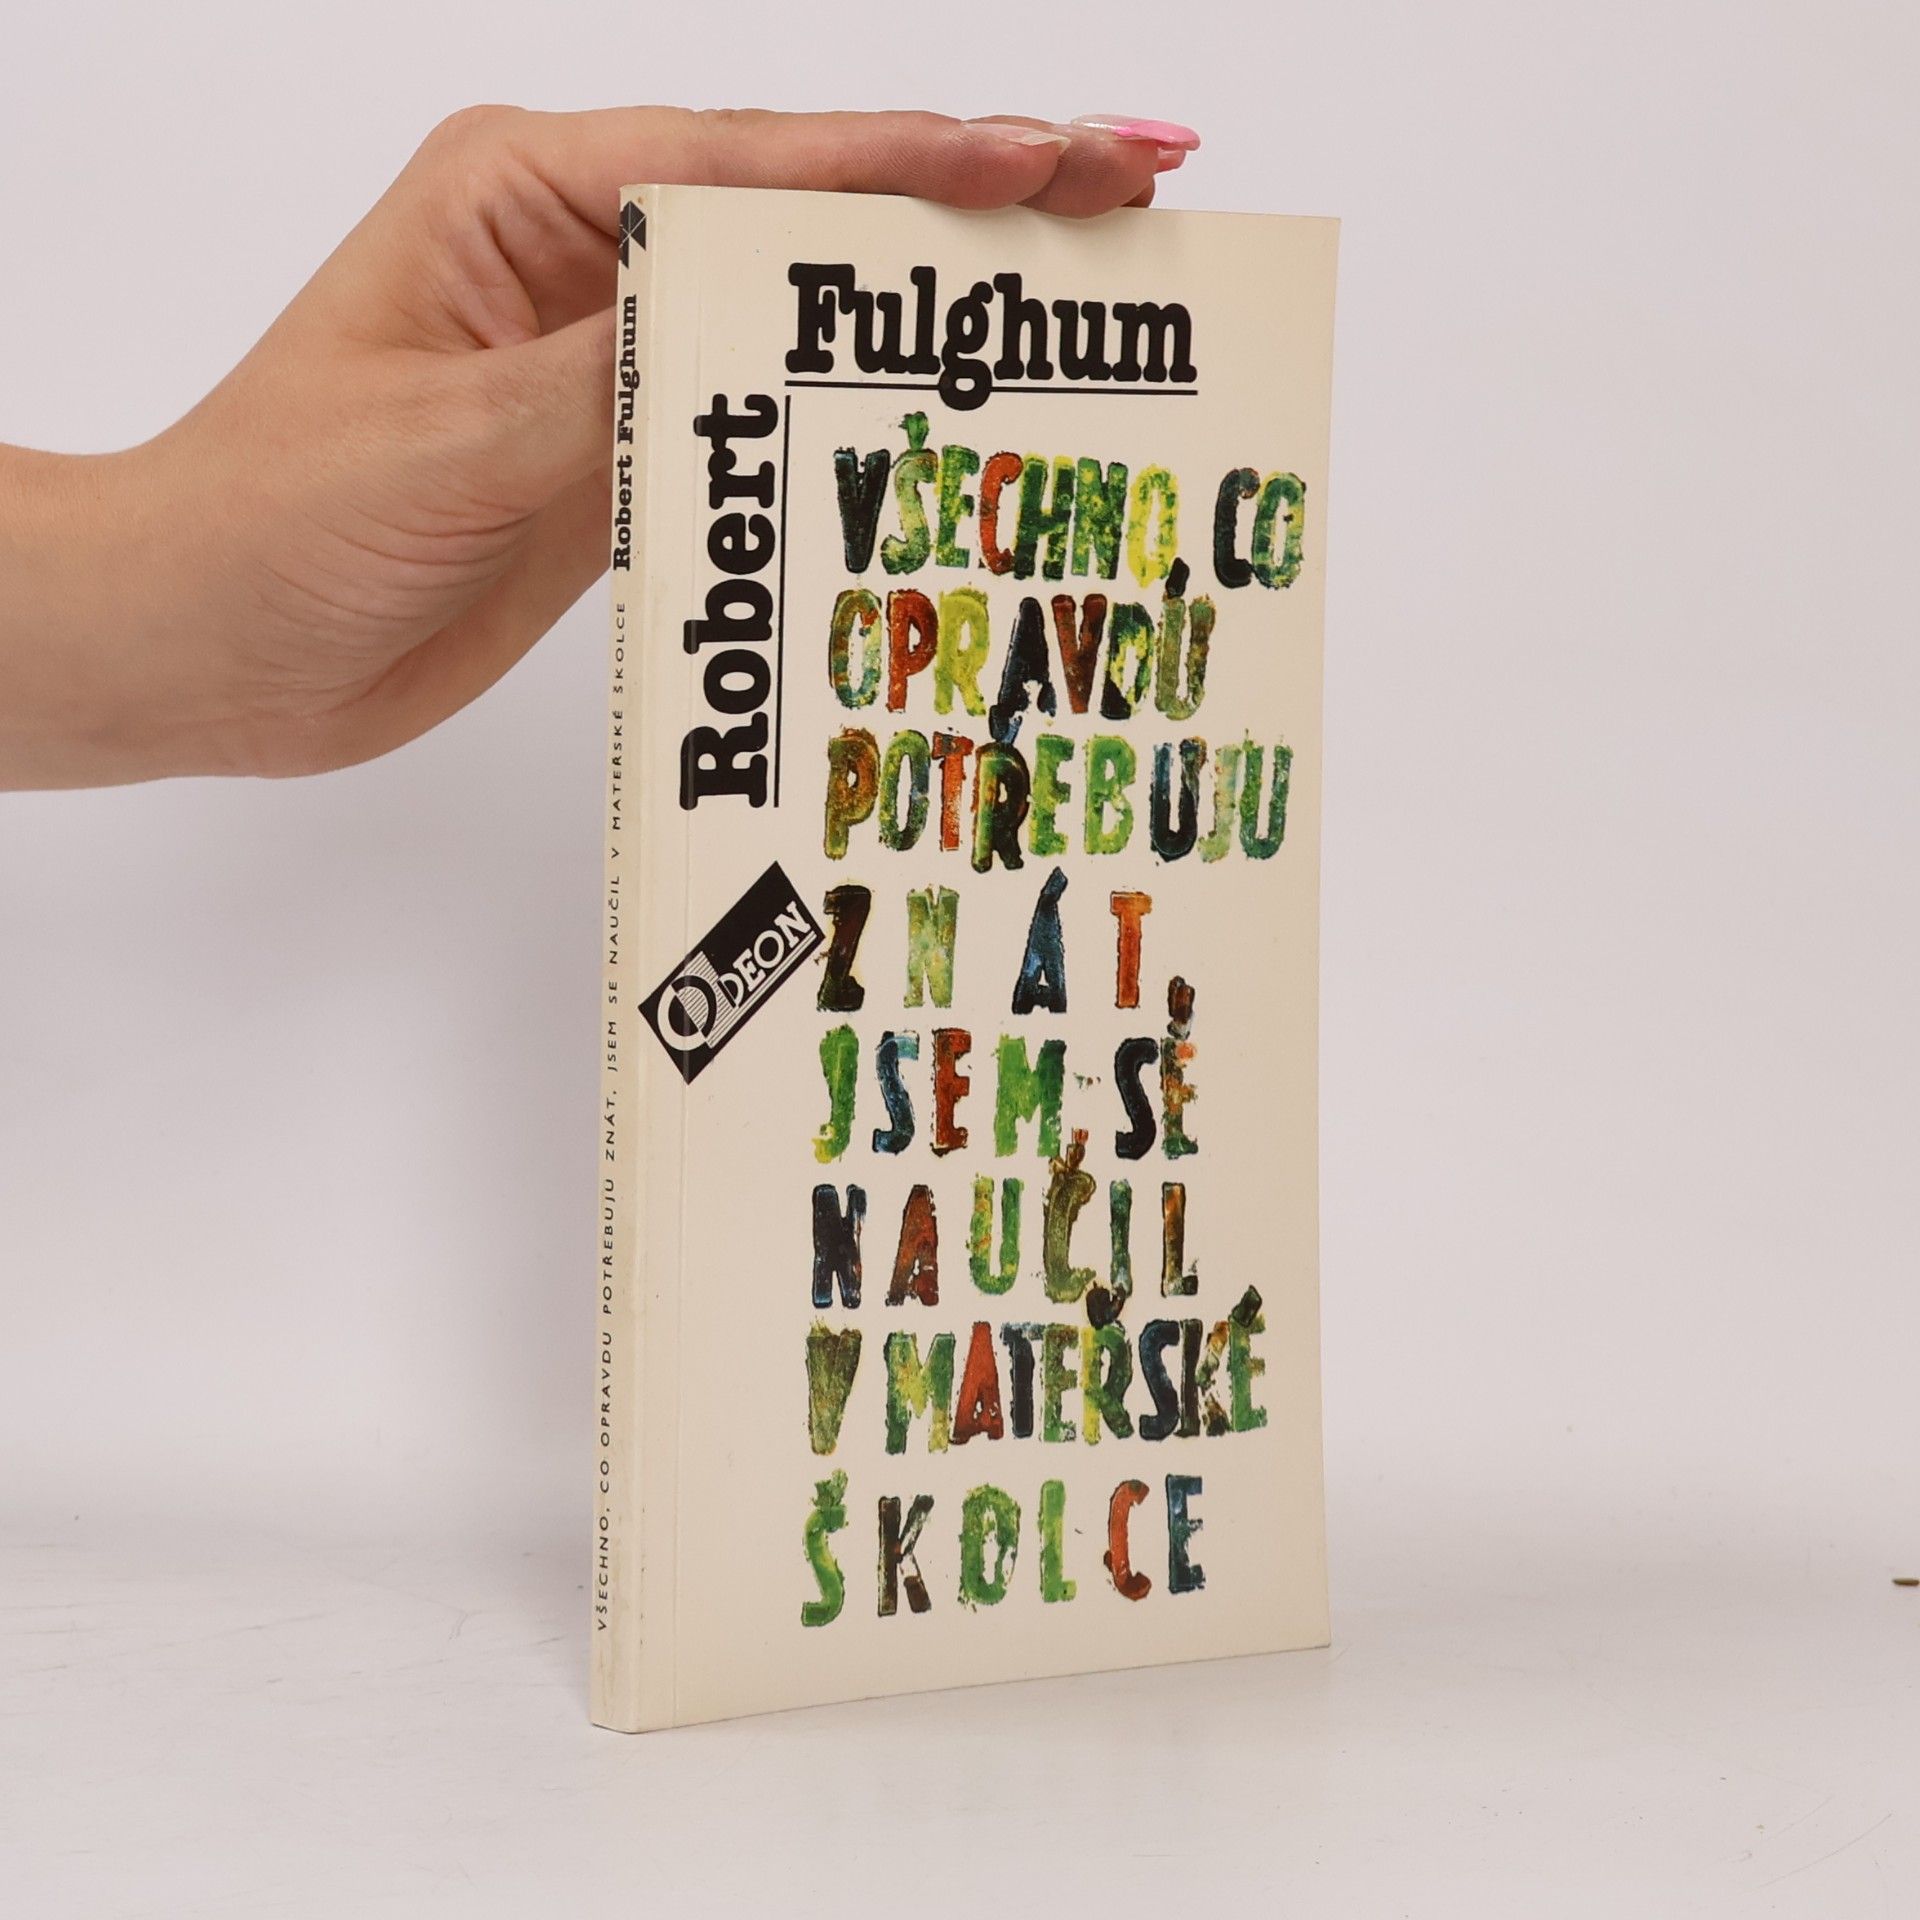 Robert Fulghum
VŠECHNO, CO OPRAVDU POTŘEBUJU ZNÁT, JSEM SE NAUČIL V MATEŘSKÉ ŠKOLCE
Robert
Fulghum
VŠECHNO, CO
OPRAVDU
POTŘEBUJU
ZNÁT,
JSEM SE
NAUČIL
V MATEŘSKÉ
ŠKOLCE
ODEON